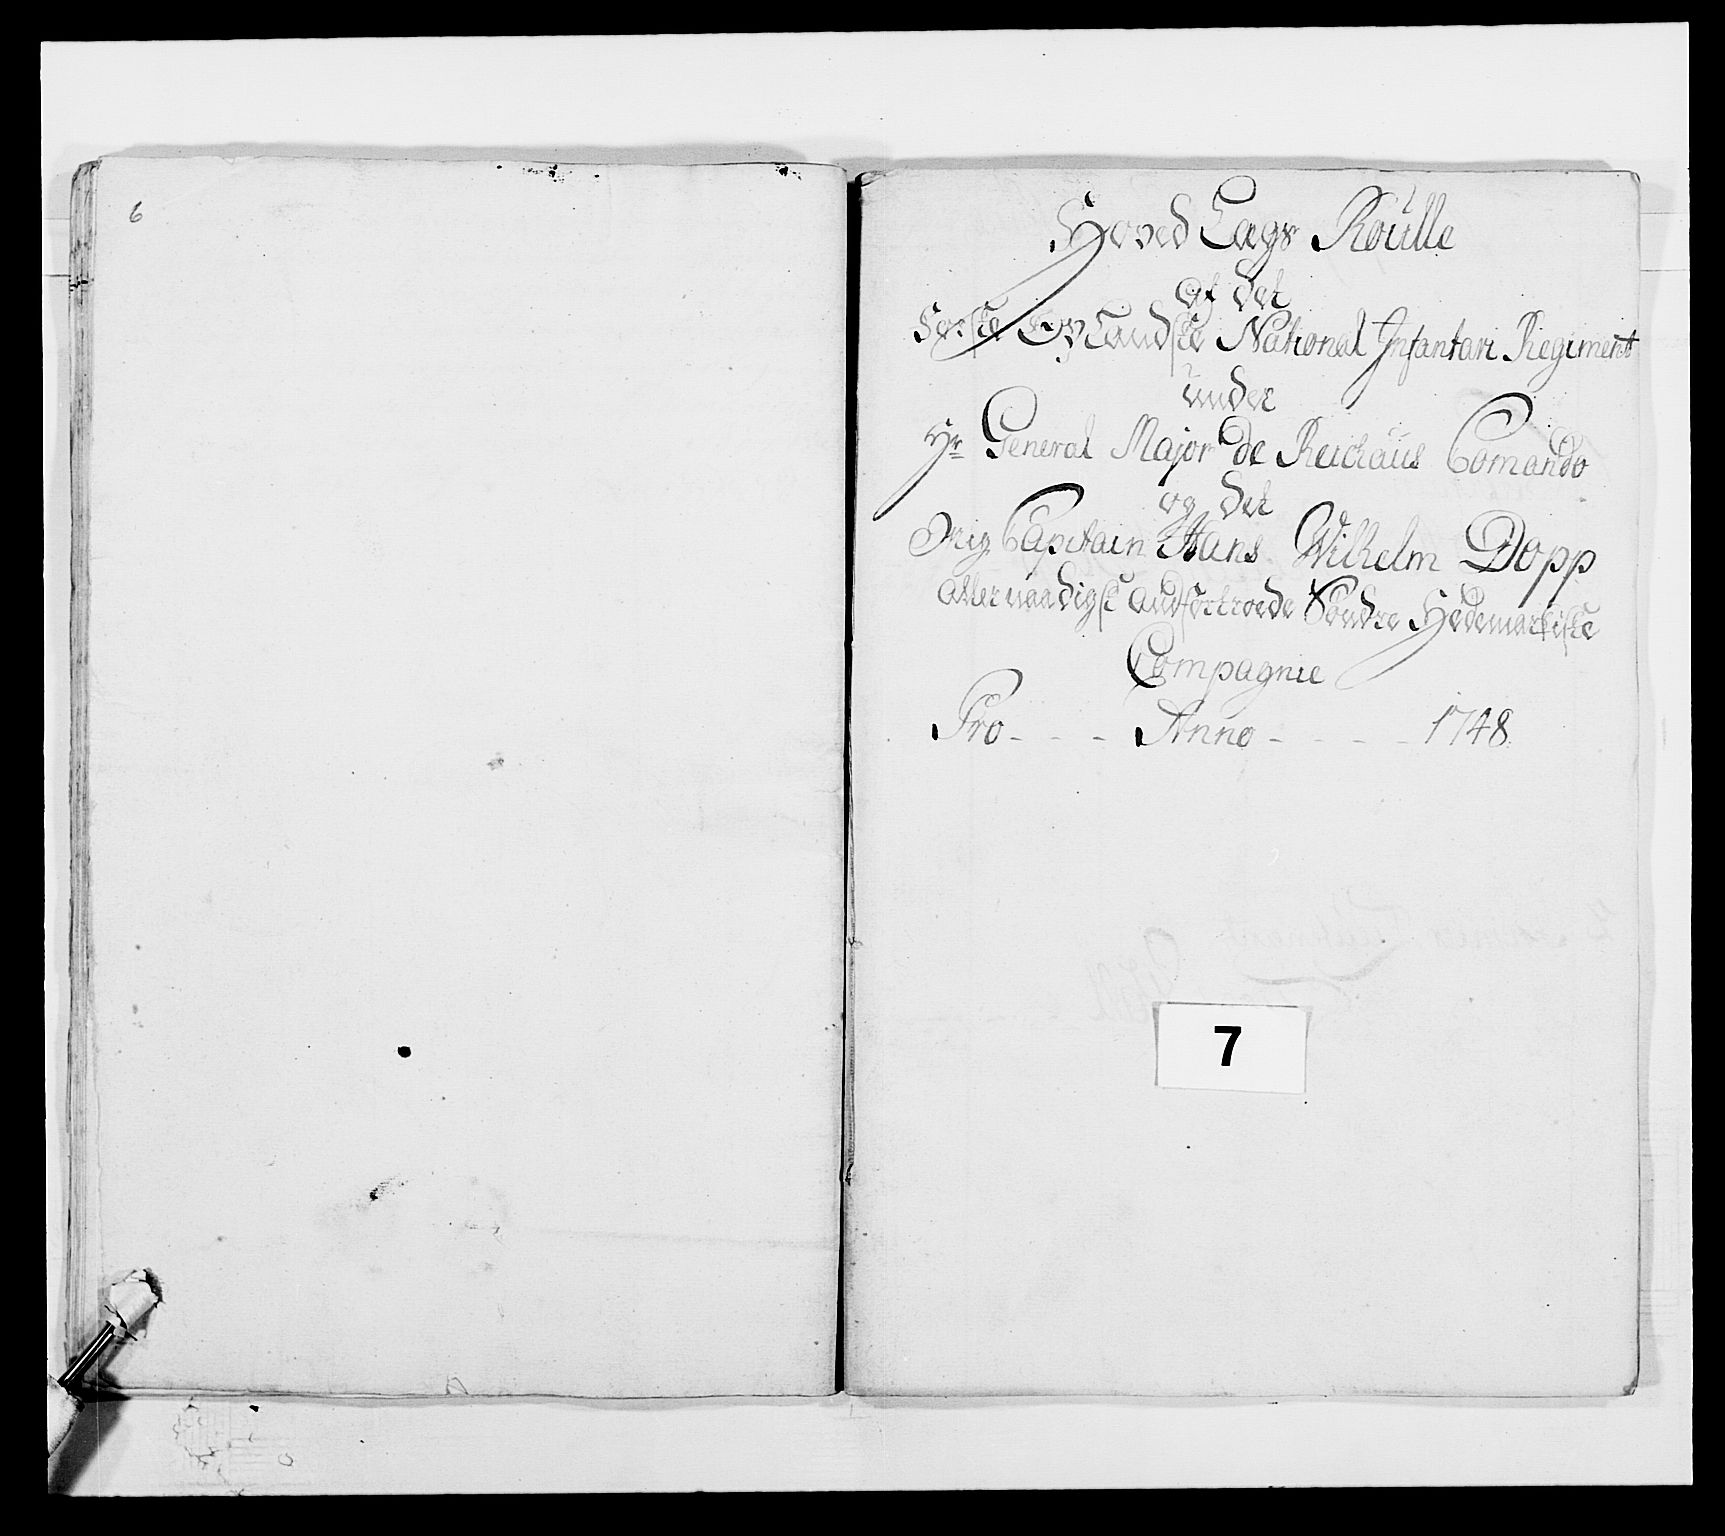 6
Hoved Lægs Roulle
af det
Første Oplandske National Infantari Regiment
under
Hr General Major de Reichaus Comando
og det
Mig Capitain Hans Wilhelm Dopp
allernaadigst andfortroede Søndre Hedemarkiske
Compagnie
Pro - - - Anno - - - - - 1748
7